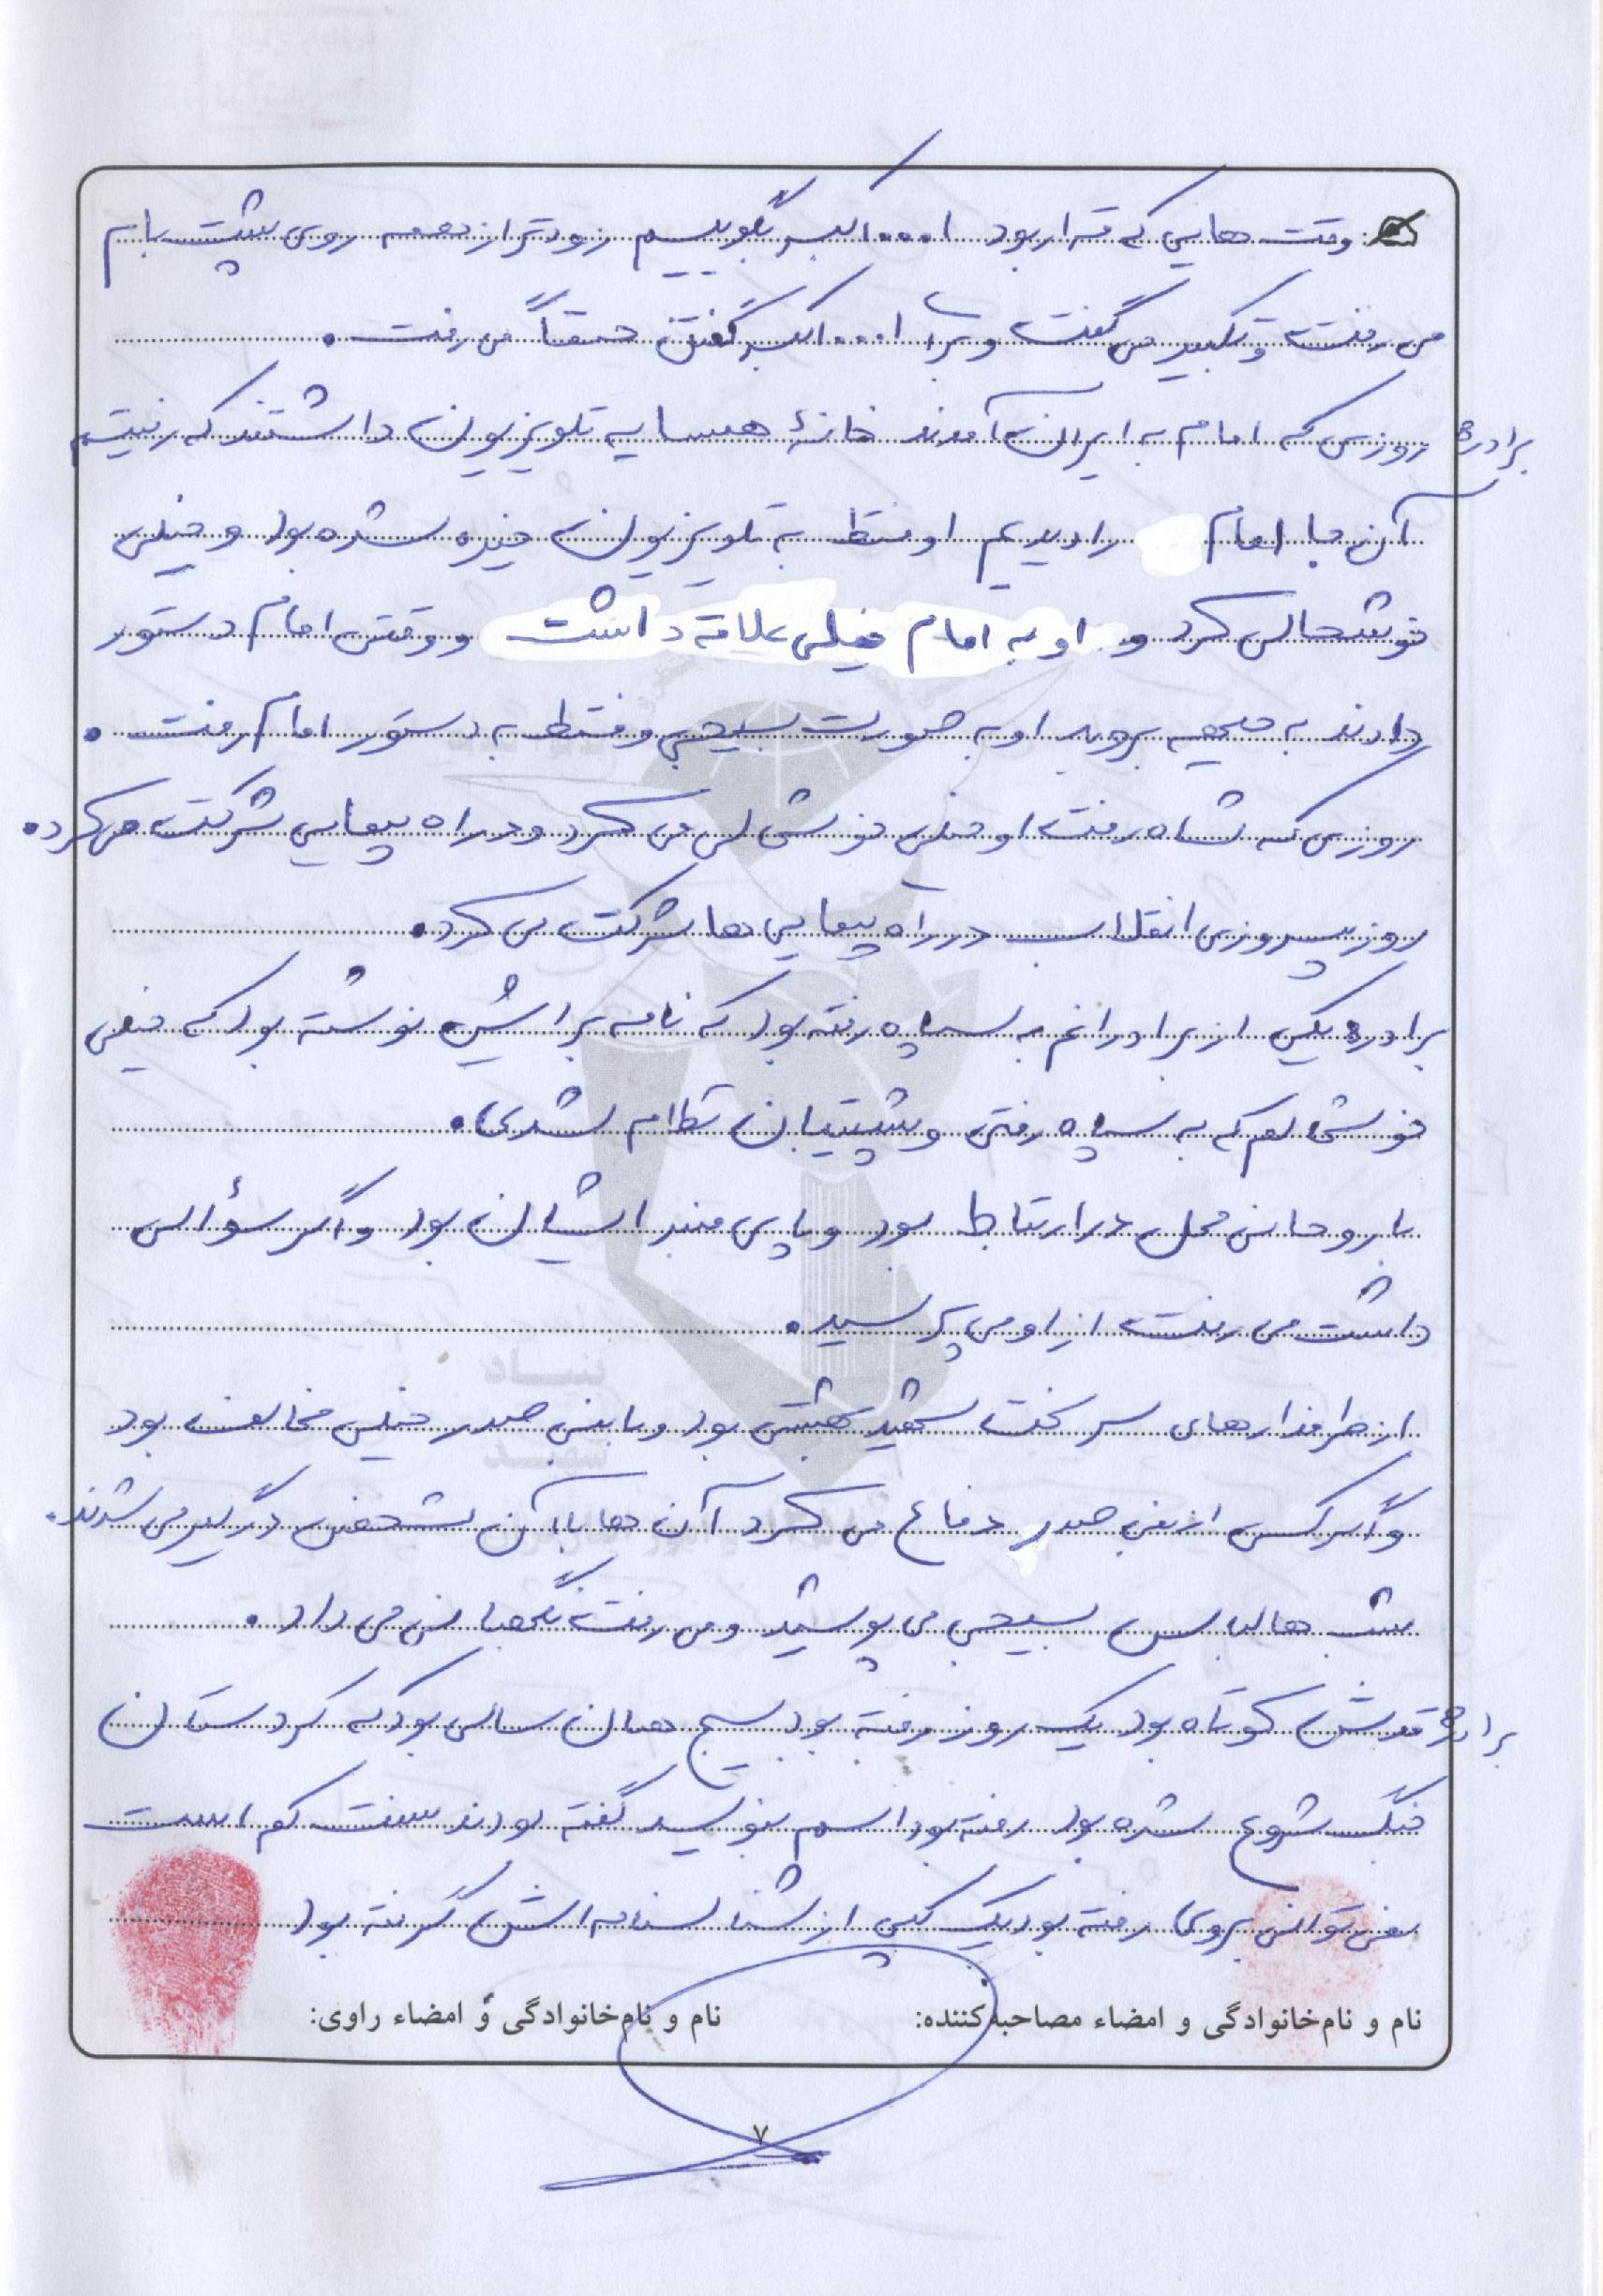 وقت هایی که قرار بود ا... اکبر بگوییم زودتر از همه روی پشت بام
می رفت و تکبیر می گفت و برای ا... اکبر گفتن حتماً می رفت.
برادر: روزی که امام به ایران آمدند خانۀ همسایه تلویزیون داشتند که رفتیم
آن جا امام را دیدیم او فقط به تلویزیون خیره شده بود و خیلی
خوشحالی کرد و او به امام خیلی علاقه داشت و وقتی امام دستور
دادند به جبهه بروید او به صورت بسیجی و فقط به دستور امام رفت.
روزی که شاه رفت او خیلی خوشحالی می کرد و در راه پیمایی شرکت می کرد.
روز پیروزی انقلاب در راه پیمایی ها شرکت می کرد.
برادر: یکی از برادرانم به سپاه رفته بود که نامه برایش نوشته بود که خیلی
خوشحالم که به سپاه رفتی و پشتیبان نظام شدی.
با روحانی محل در ارتباط بود و پای منبر ایشان بود و اگر سؤالی
داشت می رفت از او می پرسید.
از طرفدارهای سرسخت شهید بهشتی بود و با بنی صدر خیلی مخالف بود
و اگر کسی از بنی صدر دفاع می کرد آن ها با آن شخص درگیر می شدند.
شب ها لباس بسیجی می پوشید و می رفت نگهبانی می داد.
برادر: قدش کوتاه بود یک روز رفته بود بسیج همان سالی بود که کردستان
جنگ شروع شده بود رفته بود اسم بنویسد گفته بودند سنت کم است
نمی توانی بروی رفته بود یک کپی از شناسنامه اش گرفته بود
نام و نام‌خانوادگی و امضاء مصاحبه‌کننده: نام و نام‌خانوادگی و امضاء راوی:
۷